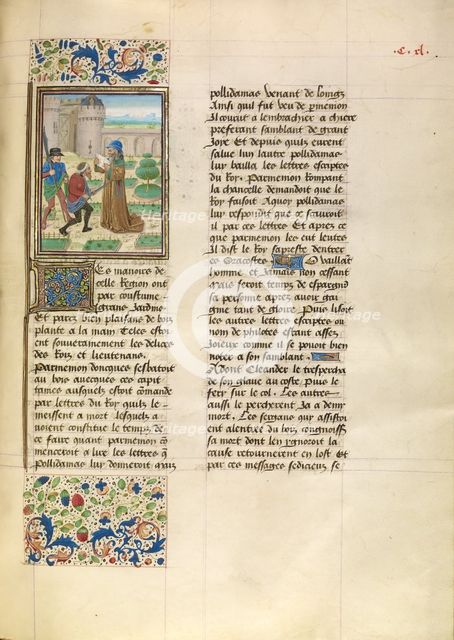 .C. xl.
Les manoirs de
celle Region ont
par coustume
grans Jardins
Et parcz bien plaisans de bois
plante a la main Celes estoi
ent souverainement les delices
des Rois et lieutenans.
Parmenon doncques sesbatoit
au bois avecques ces capi
taines ausquels estoit comande
par lettres du Roy quilz le
meissent a mort lesquelz a
voient constitue le temps de
ce faire quant parmenon com
menceroit a lire les lettres q
Pollidamas luy donneroit mais
pollidamas venant de loings
Ainsi quil fut veu de parmenon
Il courut a lembrachier a chiere
preferant samblant de grant
Joye Et depuis quilz eurent
salue lun lautre pollidamas
luy bailla les lettres escriptes
du Roy. Parmenon Rompant
la chancelle demandoit que le
Roy faisoit Aquoy pollidamas
luy respondit que ce sauroit
il par ces lettres Et apres ce
que parmenon les eut leutes
Il dist le Roy sapreste dentrer
es Aracostes Vaillat
homme et Jamais non cessant
mais seroit temps de espargnier
sa personne apres avoir gai
gne tant de gloire Puis lisoit
les autres lettres escriptes ou
nom de philotes estant assez
Joieux comme il se povoit bien
noter a son samblant.
Adont Cleander le tresperca
de son glaive au coste Puis le
fery sur le col. Les autres
aussi le percherent Ja a demy
mort. Les sergans qui assistoi
ent alentree du bois congnoiss
sa mort dont len ygnoroit la
cause retournerent en lost Et
par ces messages sedicieux se
Heritage
Images